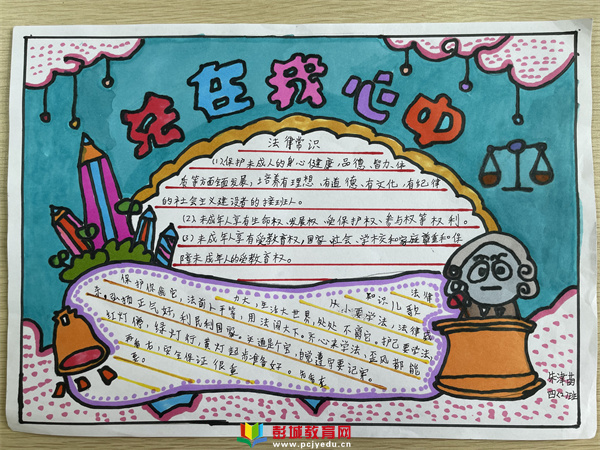 法在我心中
法律常识
(1)保护未成人的身心健康,品德、智力、体
质等方面全面发展,培养有理想、有道德、有文化、有纪律
的社会主义建设者的接班人。
(2)未成年享有生命权、发展权、受保护权、参与权等权利。
(3)未成年享有受教育权,国家、社会、学校和家庭尊重和保
障未成年人的受教育权。
法律
知识儿歌
从小要学法,法律
保护你我它,法前人
力大,生活大世界,处处不离它,
正气好,利民利国家,用法闯天下。齐心来学法,歪风都能
红灯停,绿灯行,黄灯起步准备好。交通是个宝,自觉遵守要记牢。
安全保证很重
要。
朱泽苗
彭城教育网
www.pcjyedu.cn